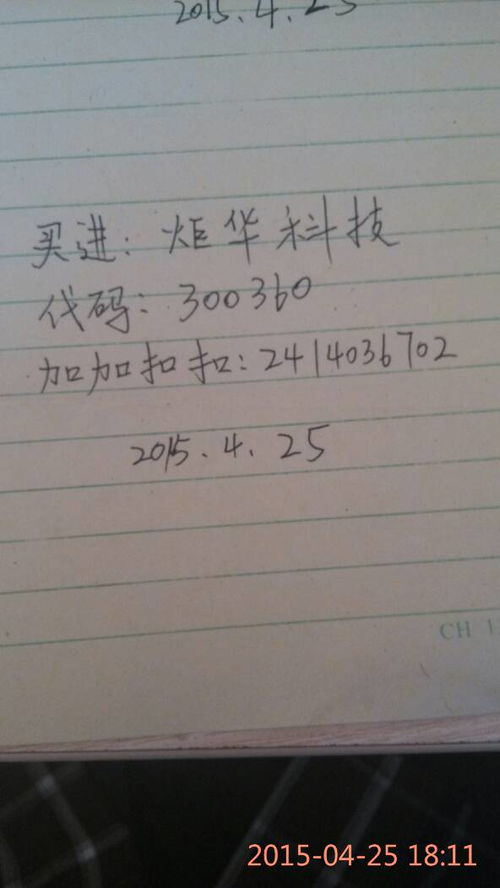 2015.4.25
买进：炬华科技
代码：300360
加加扣扣：2414036702
2015.4.25
CH 1
2015-04-25 18:11